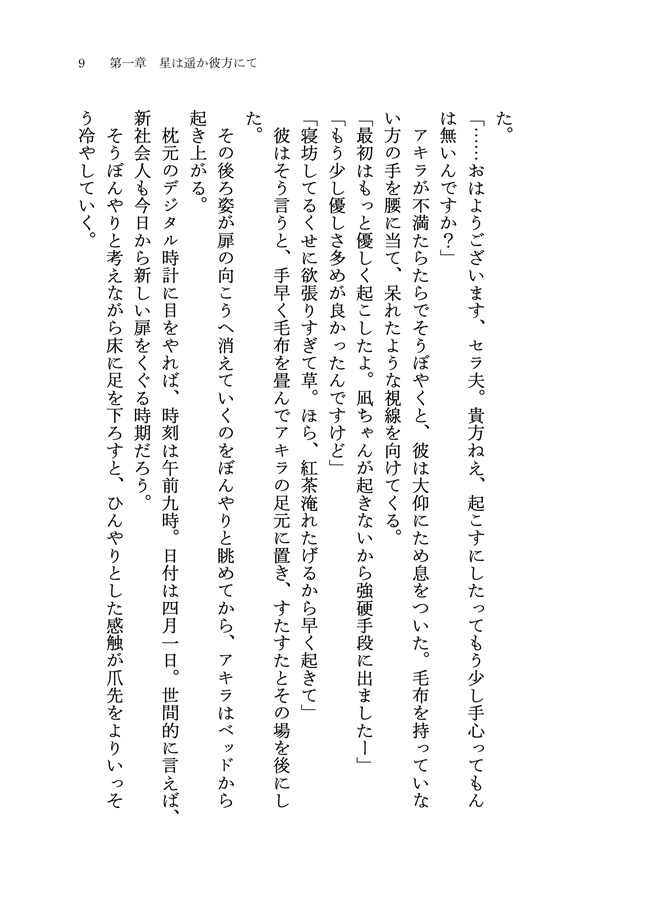 9　第一章　星は遥か彼方にて
た。
「……おはようございます、セラ夫。貴方ねえ、起こすにしたってもう少し手心ってもん
は無いんですか？」
　アキラが不満たらたらでそうぼやくと、彼は大仰にため息をついた。毛布を持っていな
い方の手を腰に当て、呆れたような視線を向けてくる。
「最初はもっと優しく起こしたよ。凪ちゃんが起きないから強硬手段に出ましたー」
「もう少し優しさ多めが良かったんですけど」
「寝坊してるくせに欲張りすぎて草。ほら、紅茶淹れたげるから早く起きて」
　彼はそう言うと、手早く毛布を畳んでアキラの足元に置き、すたすたとその場を後にし
た。
　その後ろ姿が扉の向こうへ消えていくのをぼんやりと眺めてから、アキラはベッドから
起き上がる。
　枕元のデジタル時計に目をやれば、時刻は午前九時。日付は四月一日。世間的に言えば、
新社会人も今日から新しい扉をくぐる時期だろう。
　そうぼんやりと考えながら床に足を下ろすと、ひんやりとした感触が爪先をよりいっそ
う冷やしていく。